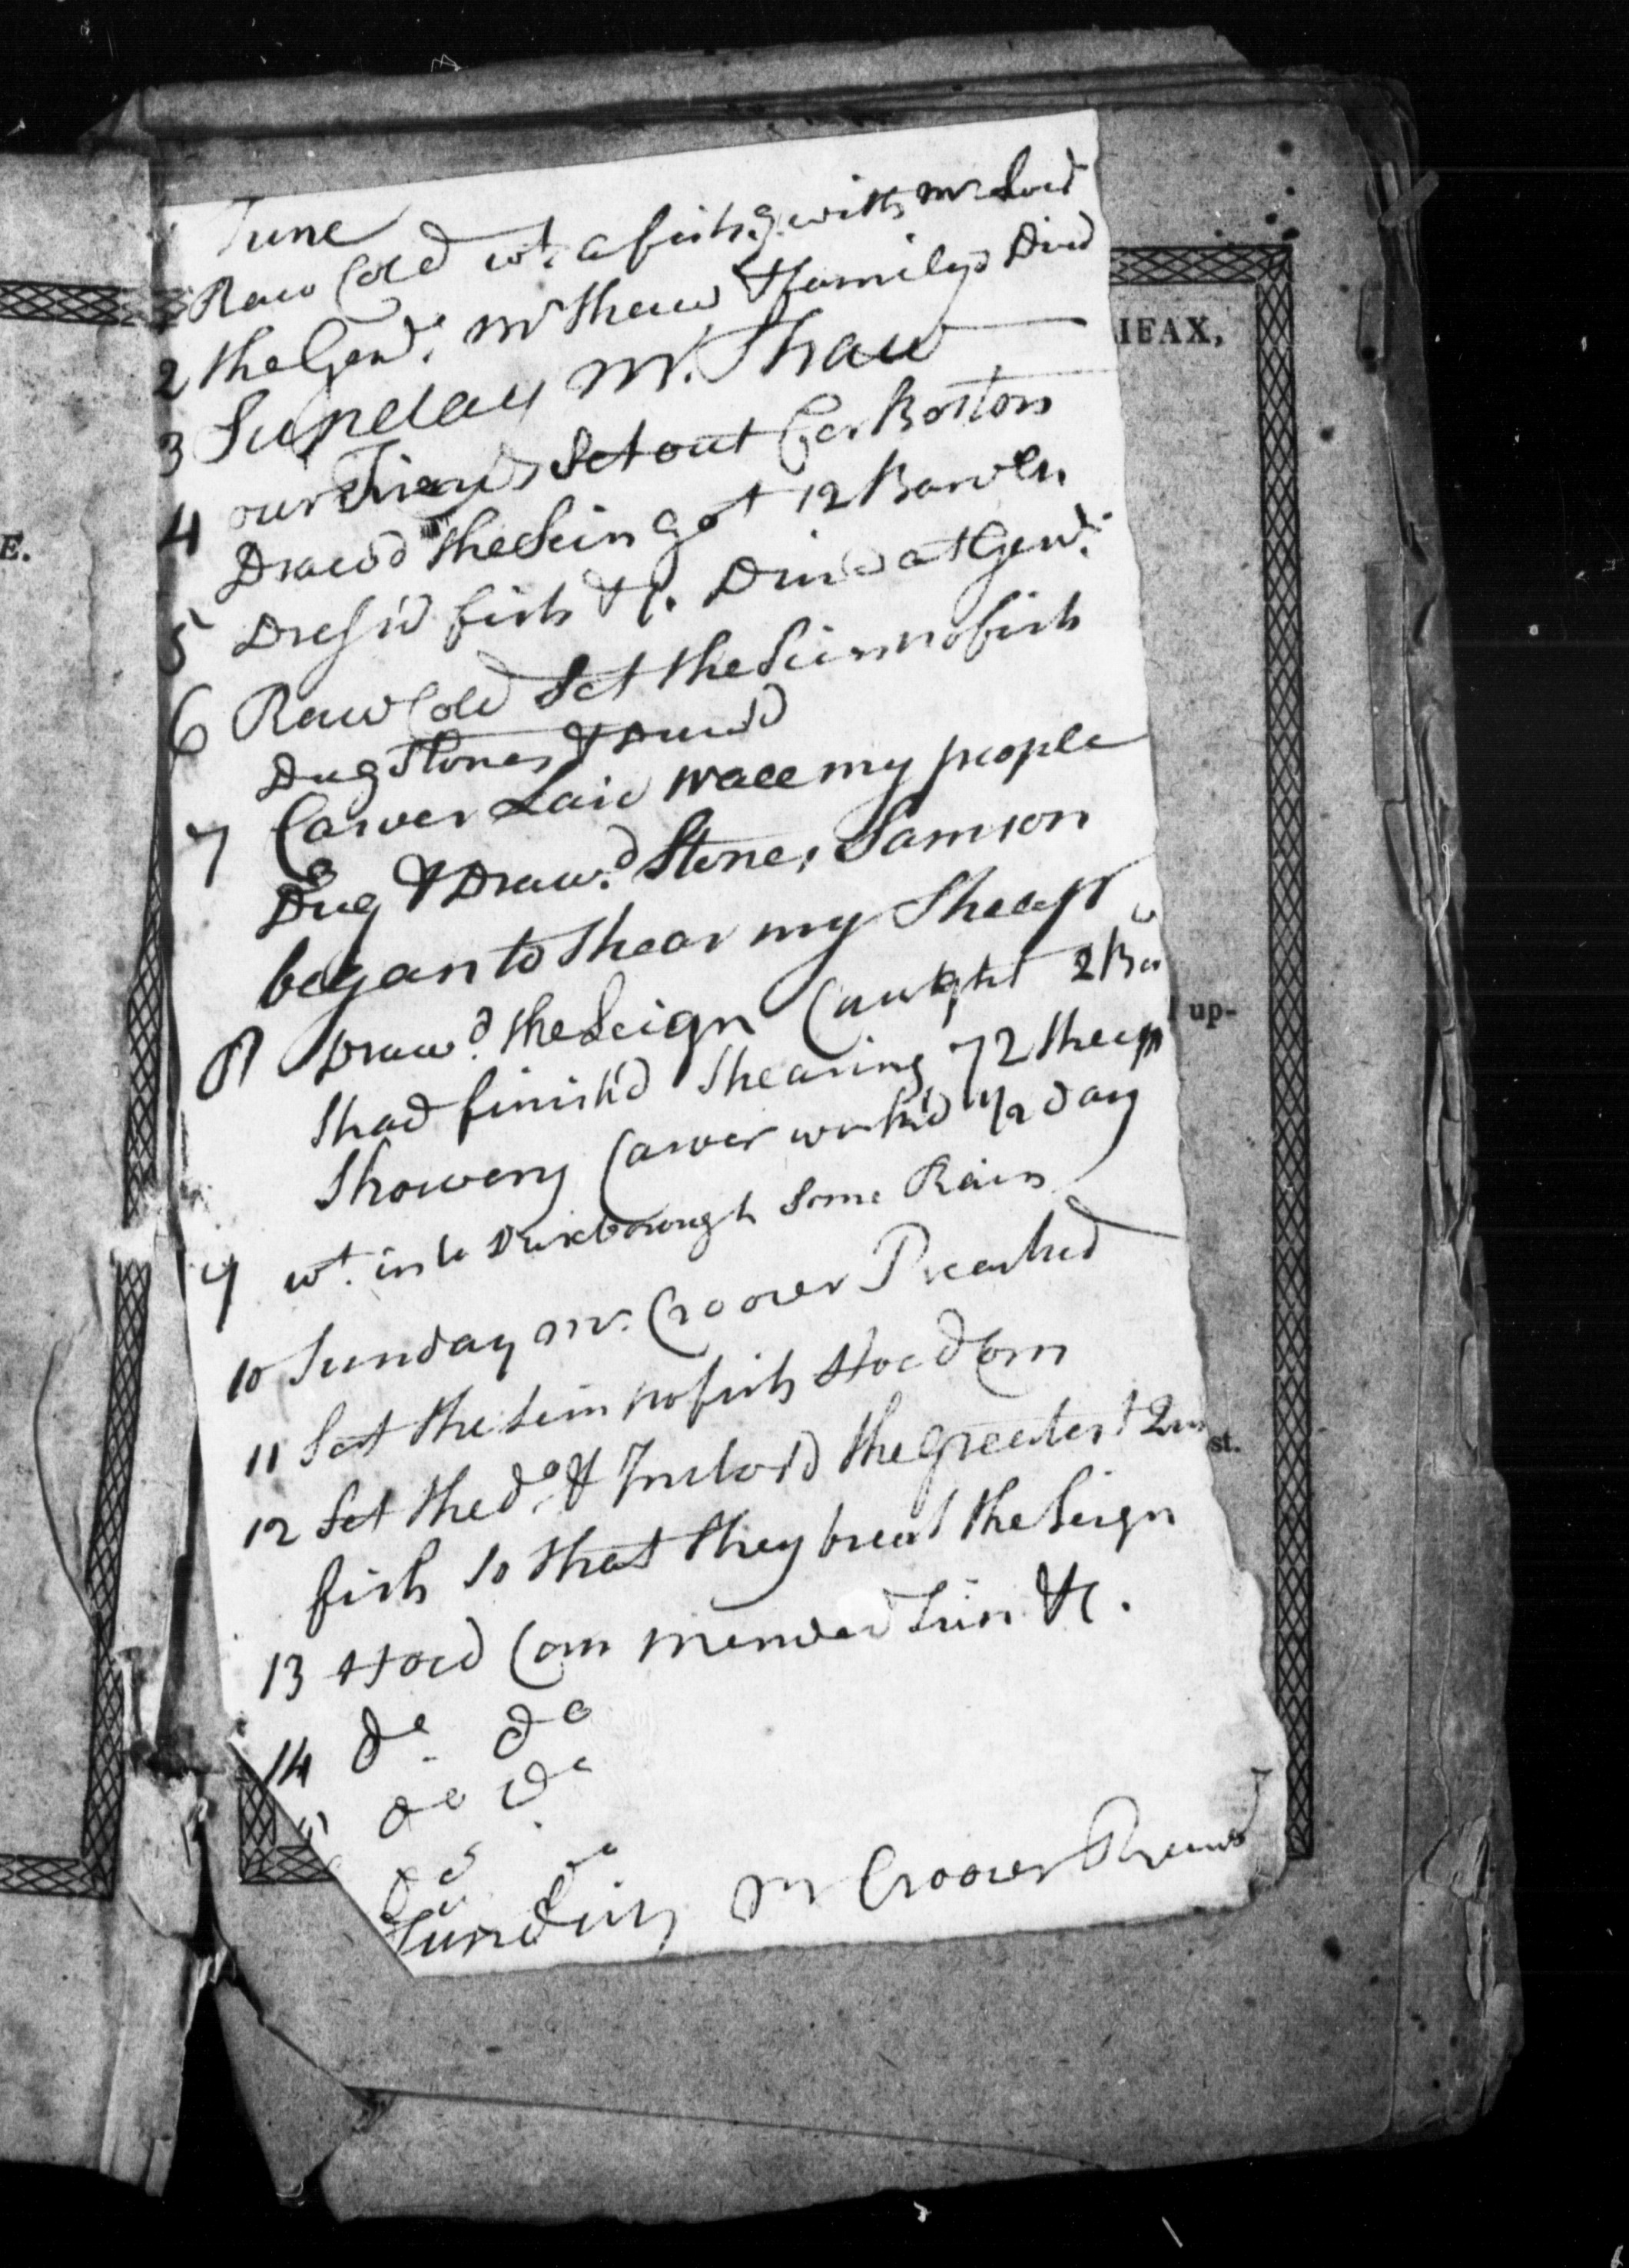 June
1 Raw Cold wt. a fishg. with Mr
2 the Genl. Mr Shaw & family Dind
3 Sunday Mr. Shaw
4 our Friends Set out for Boston
Draw'd the Sein got 12 Barrels
5 Dress'd fish &c. Dined at Genls.
6 Raw Cold Set the Sein no fish
Dug Stones &
7 Carver Laid wall my people
Dug & Draw.d Stones Samson
began to Shear my Sheep
8 Draw.d the Seign Caught 2 Ba
Shad finish'd Shearing 72 Sheep
Showery Carver work'd 1/2 day
9 wt. in to Duxborough Some Rain
10 Sunday Mr. Crooker Preached
11 Set the Sein no fish Hoed Corn
12 Set the do. & Inclos'd the greatest
fish So that they breat the Seign
13 Hoed Corn mended Sein &c.
14 do. do
15 do do
do do
Sunday Mr Crooker
IFAX,
E.
up-
st.